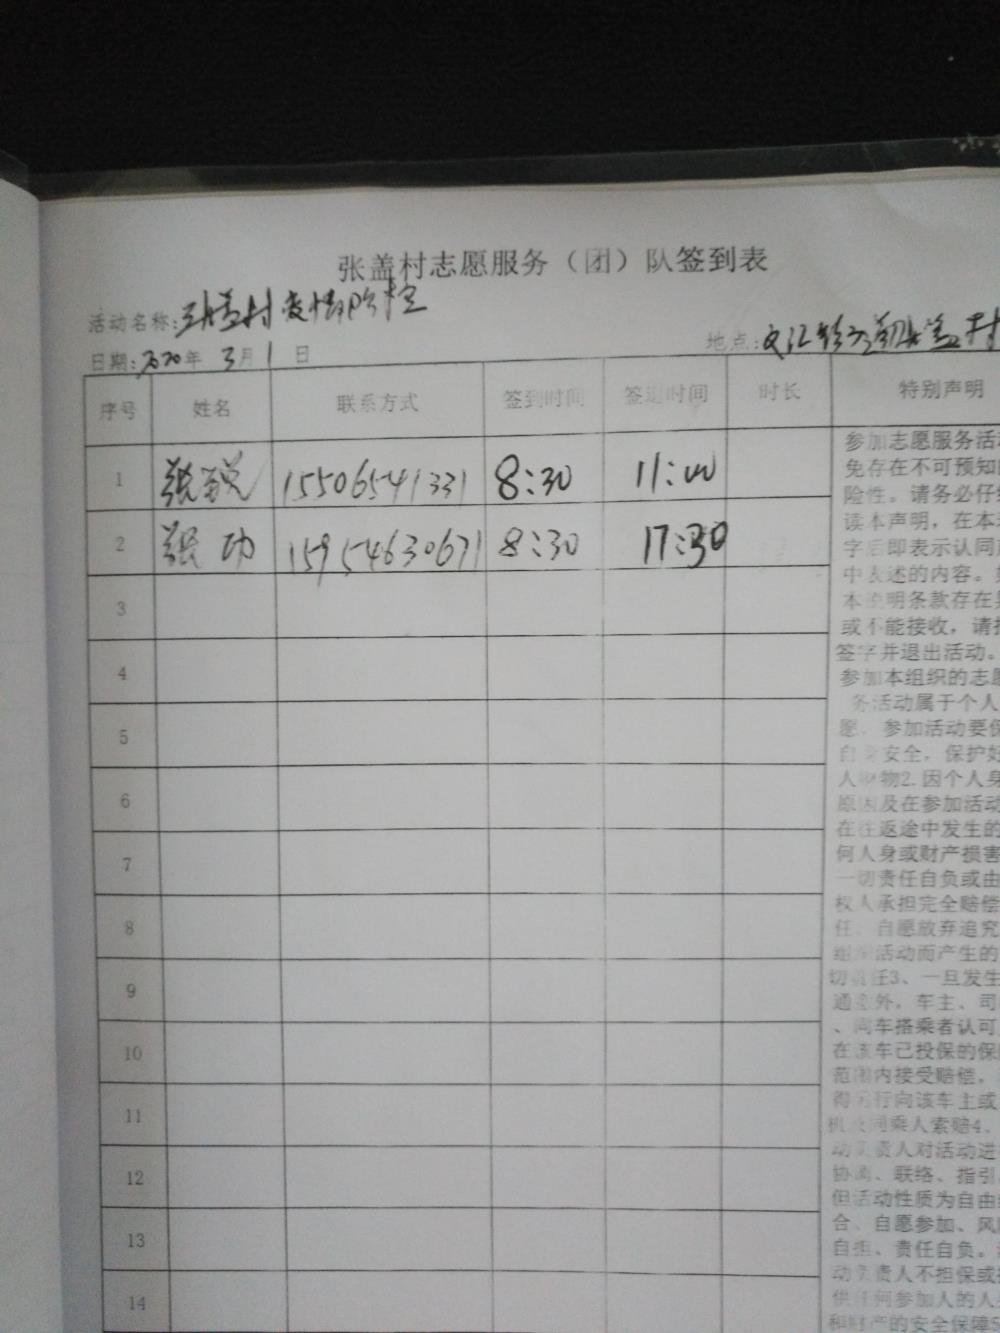 张盖村志愿服务（团）队签到表
活动名称:张盖村疫情防控
日期:2020年 3月1 日 地点:
序号 姓名 联系方式 签到时间 签退时间 时长 特别声明
1 张 15506541331 8:30 11:00
2 张功 15954630671 8:30 17:30
3
4
5
6
7
8
9
10
11
12
13
14
参加志愿服务活
免存在不可预知
险性。请务必仔
读本声明，在本
字后即表示认同
中表述的内容。
本说明条款存在
或不能接收，请
签字并退出活动。
参加本组织的志愿
务活动属于个人
愿，参加活动要保
自身安全，保护好
人财物2.因个人身
原因及在参加活动
在往返途中发生的
何人身或财产损害
一切责任自负或由
权人承担完全赔偿
任，自愿放弃追究
组织活动而产生的
切责任3、一旦发生
通意外，车主、司
、同车搭乘者认可
在该车已投保的保
范围内接受赔偿，
得另行向该车主或
机及同乘人索赔4、
动负责人对活动进
协调、联络、指引
但活动性质为自由
合、自愿参加、风
自担、责任自负。
动负责人不担保或
供任何参加人的人
和财产的安全保障